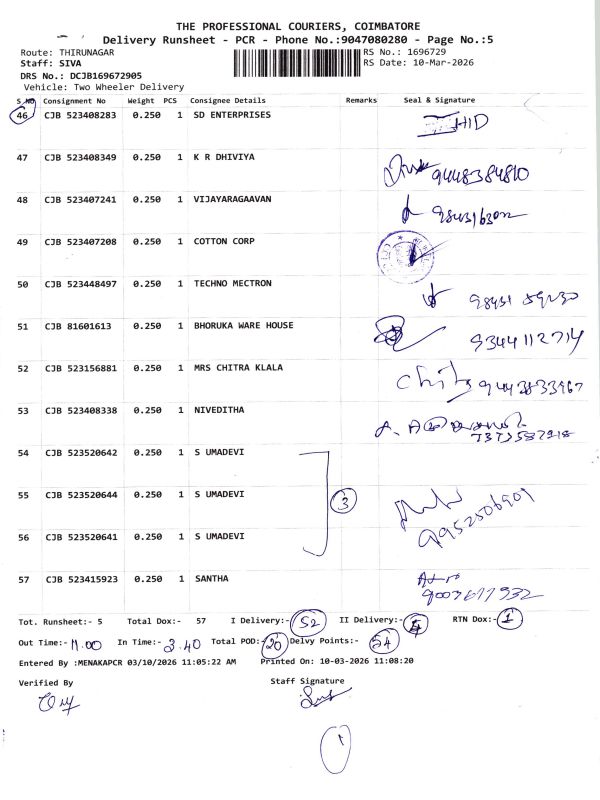 THE PROFESSIONAL COURIERS, COIMBATORE
Delivery Runsheet - PCR - Phone No.:9047080280 - Page No.:5
Route: THIRUNAGAR RS No.: 1696729
Staff: SIVA RS Date: 10-Mar-2026
DRS No.: DCJB169672905
Vehicle: Two Wheeler Delivery
S.NO Consignment No Weight PCS Consignee Details Remarks Seal & Signature
46 CJB 523408283 0.250 1 SD ENTERPRISES
47 CJB 523408349 0.250 1 K R DHIVIYA 9448384810
48 CJB 523407241 0.250 1 VIJAYARAGAAVAN
49 CJB 523407208 0.250 1 COTTON CORP
50 CJB 523448497 0.250 1 TECHNO MECTRON
51 CJB 81601613 0.250 1 BHORUKA WARE HOUSE 9344112714
52 CJB 523156881 0.250 1 MRS CHITRA KLALA
53 CJB 523408338 0.250 1 NIVEDITHA
54 CJB 523520642 0.250 1 S UMADEVI
55 CJB 523520644 0.250 1 S UMADEVI 3 9952506901
56 CJB 523520641 0.250 1 S UMADEVI
57 CJB 523415923 0.250 1 SANTHA
Tot. Runsheet:- 5 Total Dox:- 57 I Delivery:- 52 II Delivery:- RTN Dox:- 1
Out Time:- 11.00 In Time:- 3.40 Total POD:- 20 Delvy Points:- 54
Entered By :MENAKAPCR 03/10/2026 11:05:22 AM Printed On: 10-03-2026 11:08:20
Verified By Staff Signature
1